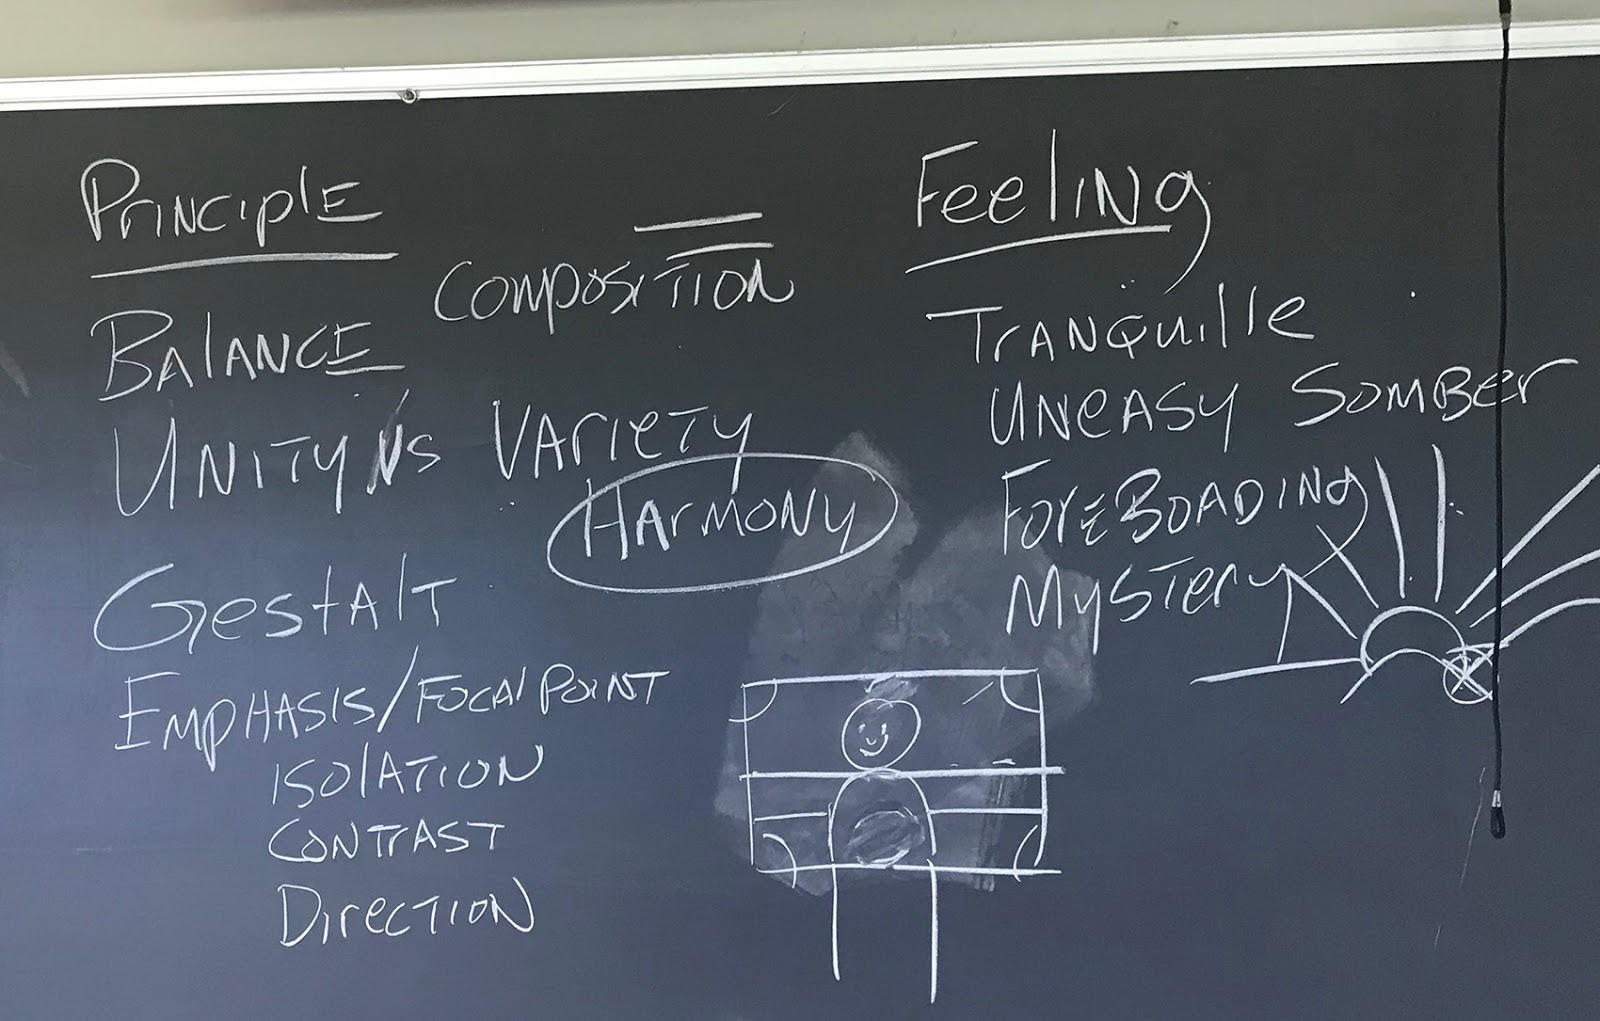 Principle
Composition
Balance
Unity vs Variety
Harmony
Gestalt
Emphasis/Focal Point
Isolation
Contrast
Direction
Feeling
Tranquille
Uneasy Somber
ForeBoading
Mystery